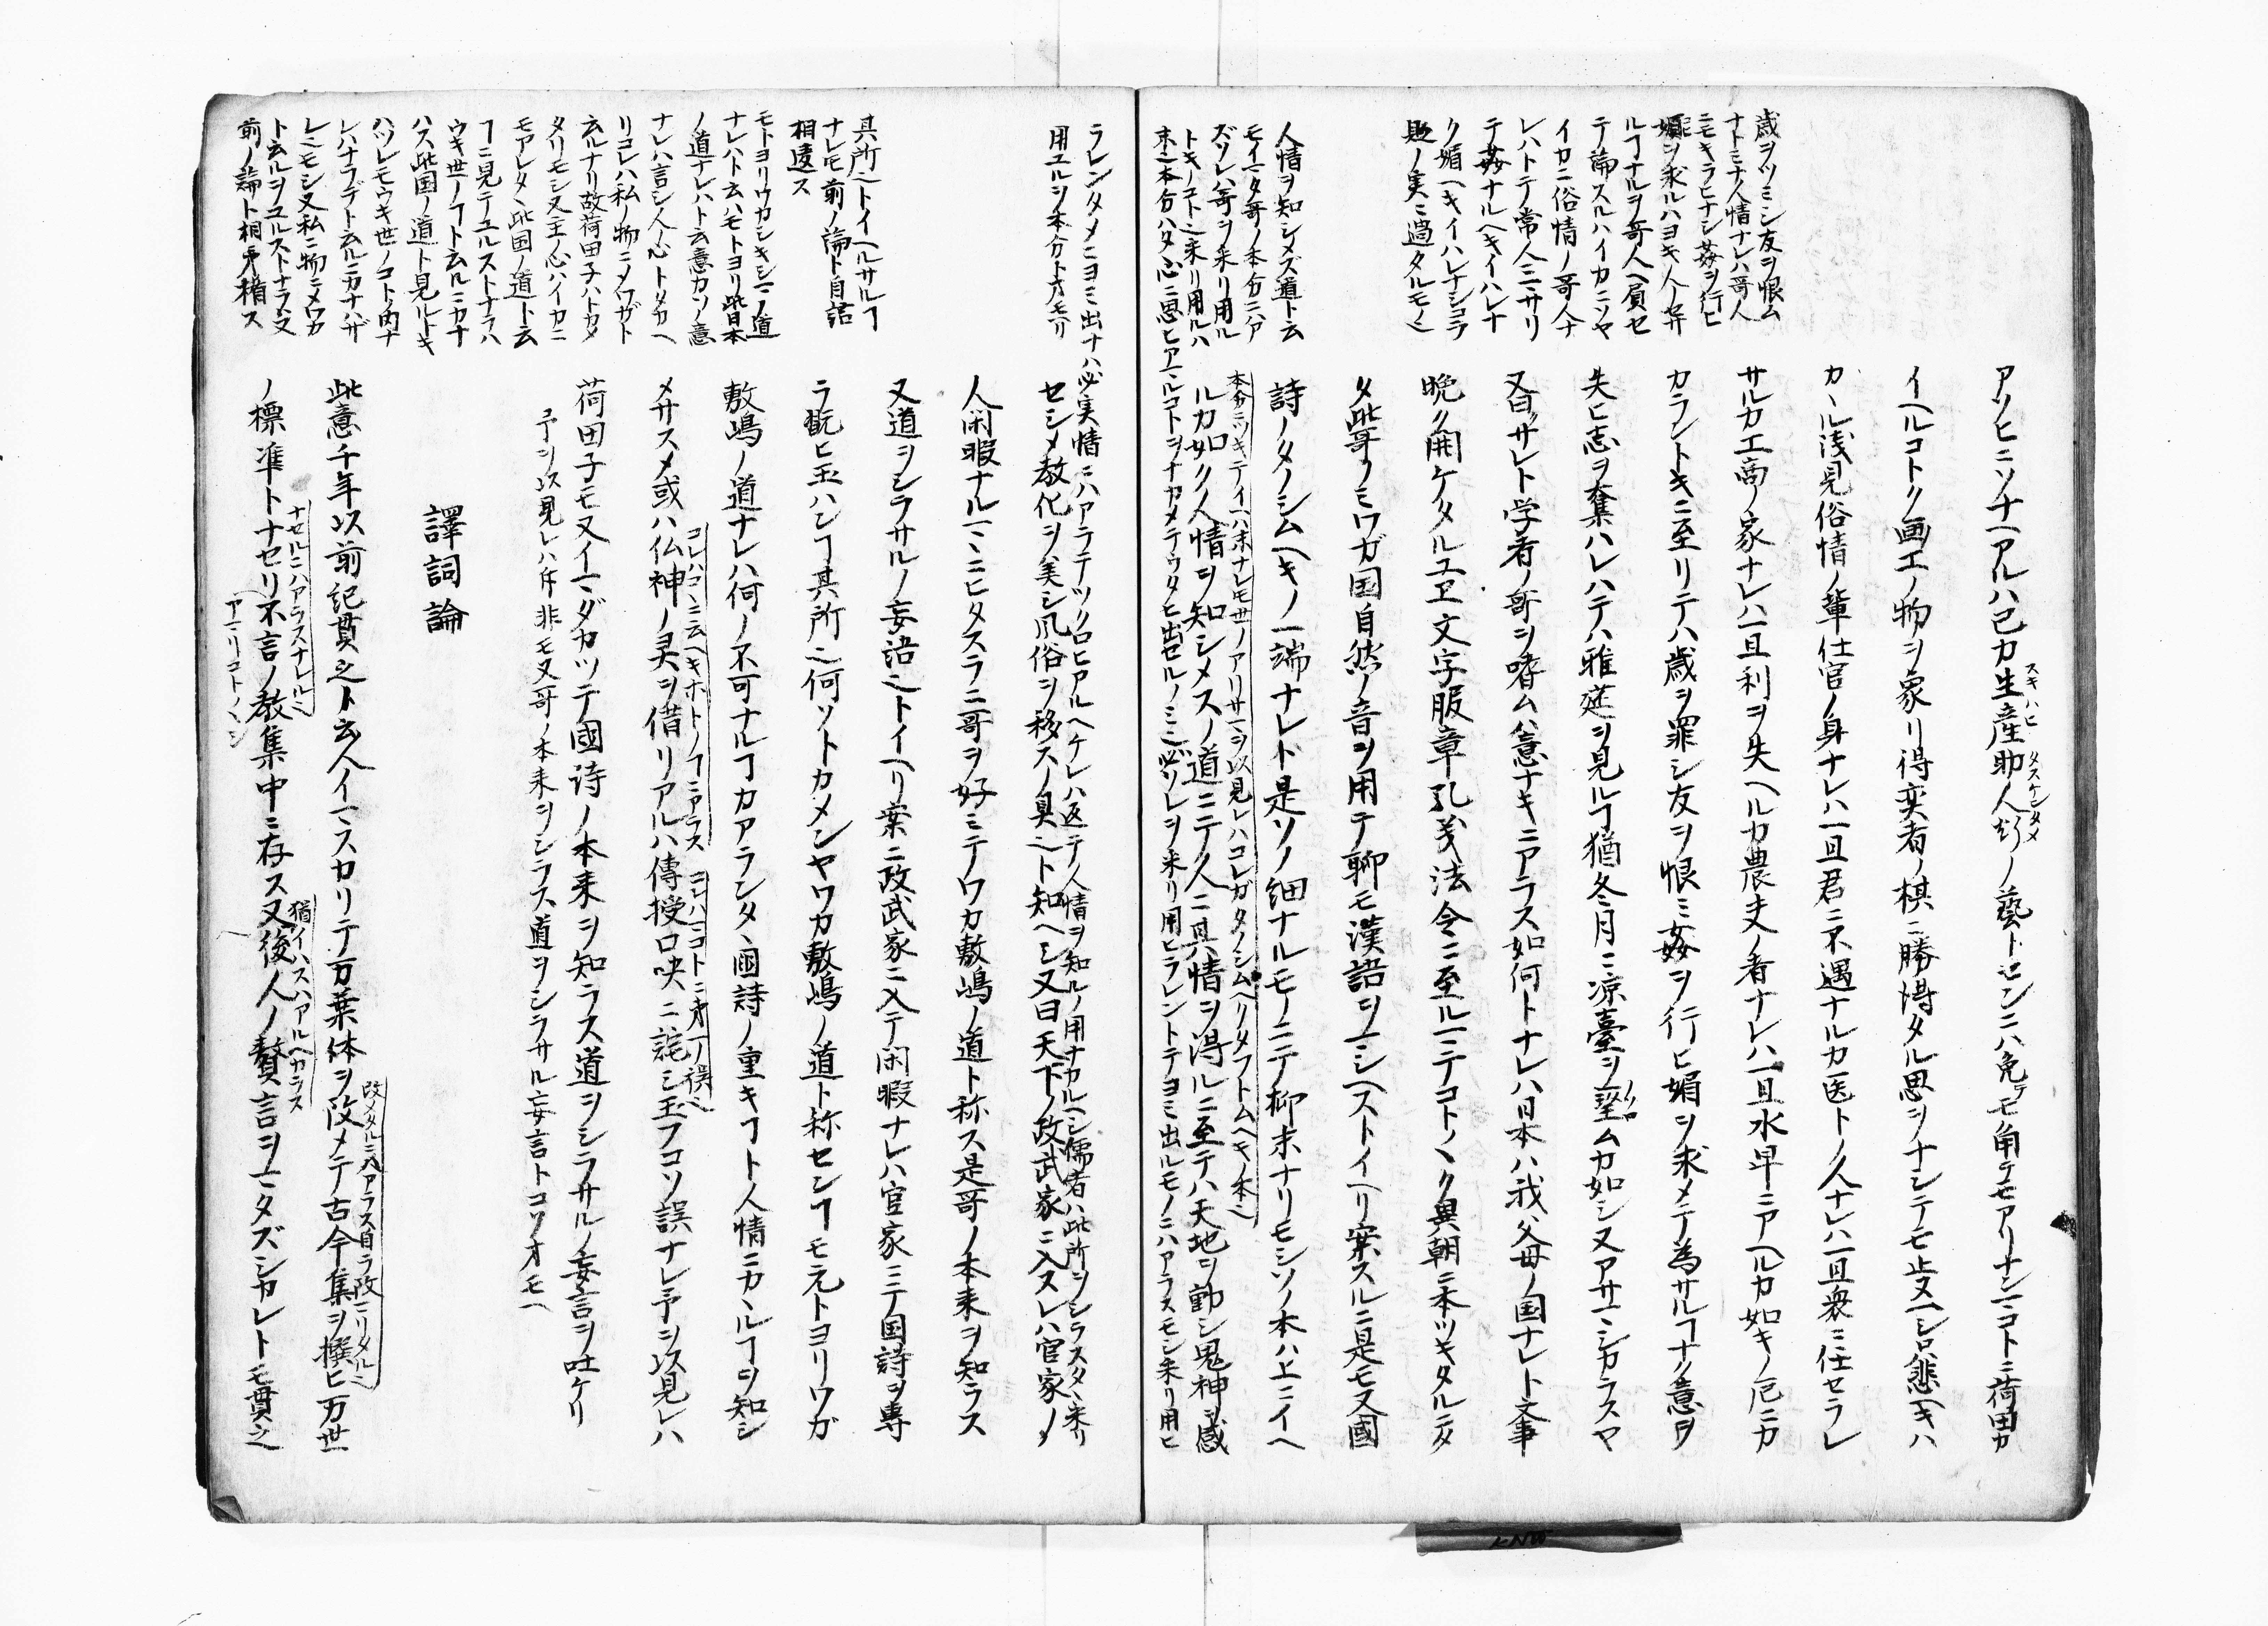 歳ヲツミシ友ヲ恨ム
ナトミナ人情ナレハ哥人
ニモキラヒナシ姦ヲ行ヒ
媚ヲ求ルハヨキ人ニ
ルフナルヲ哥人ヘ負セ
テ論スルハイカニソヤ
イカニ俗情ノ哥人ナ
レハトテ常人ニマサリ
テ姦ナルヘキイハレナ
ク媚ヘキイハレナシコラ
ノ実ニ過タルモノ也
アソヒニソナヘアルハ己カ生産助人行ノ藝トセンニハ免テモ角テモアリナンコトニ荷田カ
スキハヒ
タスケンタメ
イヘルコトク画工ノ物ヲ象リ得奕者ノ棋ニ勝得タル思ヲナシテモ止ヌヘシ只悲ヘキハ
カヽル浅見俗情ノ輩仕官ノ身ナレハ一旦君ニ不遇ナルカ医トノ人ナレハ一旦衆ニ任セラレ
サルカ工商ノ家ナレハ一旦利ヲ失ヘルカ農夫ノ者ナレハ一旦水旱ニアヘルカ如キノ厄ニカ
カラントキニ至リテハ歳ヲ罪シ友ヲ恨ミ姦ヲ行ヒ媚ヲ求メテ為サルフナク意ヲ
失ヒ志ヲ奪ハレハテハ雅莚ヲ見ルフ猶冬月ニ凉臺ヲ望ムカ如シ又アサマシカラスヤ
又曰サレト学者ノ哥ヲ嗜ムハ意ナキニアラス如何トナレハ日本ハ我父母ノ国ナレト文事
晩ク開ケタルユヱ文字服章礼義法令ニ至ルマテコト〳〵ク異朝ニ本ツキタルニタ
タ此哥ノミワガ国自然ノ音ヲ用テ聊モ漢語ヲマシヘストイヘリ案スルニ是モ又國
詩ノタノシムヘキノ一端ナレド是ソノ細ナルモノニテ抑末ナリモシソノ本ハ上ニイヘ
本分ニツキテイヘハ末ナレモ世ノアリサマヲ以見レハコレガタノシムヘリタフトムヘキノ本也
ルカ如ク人情ヲ知シメスノ道ニテ人ニ具情ヲ得ルニ至テハ天地ヲ動シ鬼神ヲ感
人情ヲ知シメズ道ト云
モイマタ哥ノ本分ニハア
ズソレハ哥ヲ来リ用ル
トキノコト也来リ用ルハ
末也本分ハタヽ心ニ思ヒアマルコトヲナカメテウタヒ出セルノミ也必ソレヲ来リ用ヒラレントテヨミ出ルモノニハアラスモシ来リ用ヒ
ラレンタメニヨミ出ナハ必実情ニハアラテツクロヒアルヘケレハ返テ人情ヲ知ルノ用ナカルヘシ儒者ハ此所ヲシラスタヽ来リ
用ユルヲ本分トオモリ
セシメ教化ヲ美シ風俗ヲ移スノ具也ト知ヘシ又曰天下ノ政武家ニ入ヌレハ官家ノ
人閑暇ナルマヽニヒタスラニ哥ヲ好ミテワカ敷嶋ノ道ト称ス是哥ノ本来ヲ知ラス
又道ヲシラサルノ妄語也トイヘリ案ニ政武家ニ入テ閑暇ナレハ官家ニテ国詩ヲ専
ラ翫ヒ玉ハンフ其所也何ソトカメンヤワカ敷嶋ノ道ト称センフモ元トヨリワガ
敷嶋ノ道ナレハ何ノ不可ナルフカアランタヽ國詩ノ重キフト人情ニカヽルフヲ知シ
メサスメ或ハ仏神ノ灵ヲ借リアルハ傳授口决ニ詫シ玉フコソ誤ナレ予ヲ以見レハ
コレハコヽニ云ヘキホトノフニアラス
コレハコトニ才一ノ僕也
荷田子モ又イマダカツテ國詩ノ本来ヲ知ラス道ヲシラサルノ妄言ヲ吐ケリ
予ヲ以見レハ斥非モ又哥ノ本来ヲシラス道ヲシラサル妄言トコソオモヘ
其所也トイヘルサルフ
ナレモ前ノ論ト自語
相違ス
モトヨリワカシキシマノ道
ナレハト云ハモトヨリ此日本
ノ道ナレハト云意カソノ意
ナレハ言シ人ノ心トタカヘ
リコレハ私ノ物ニメワガト
云ルナリ故荷田子ハトカメ
タリモシ又主ノ心ハイカニ
モアレタヽ此国ノ道ト云
フニ見テユルストナラハ
ウキ世ノフト云ルニカナ
ハス此国ノ道ト見ルトキ
ハソレモウキ世ノコトノ内ナ
レハナラデト云ルニカナハザ
レミモシ又私ニ物ニメワカ
ト云ルヲユルストナラハ又
前ノ論ト相矛楯ス
譯詞論
此意千年以前紀貫之ト云人イマスカリテ万葉体ヲ改メテ古今集ヲ撰ヒ万世
改メタルニハアラス自ラ改ニリタル也
ノ標準トナセリ不言ノ教集中ニ存ス又後人ノ贅言ヲマタズシカレトモ貫之
ナセルニハアラスナレル也
アマリコトノヽシ
猶イハスハアルヘカラス